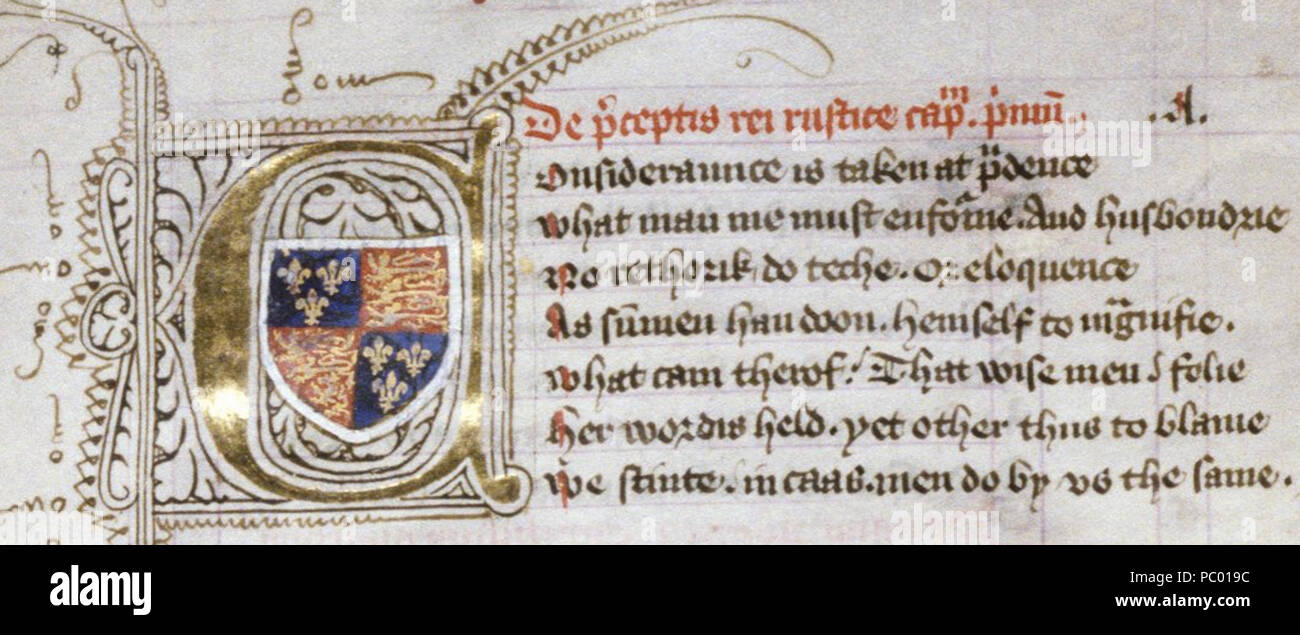 De p̄ceptis rei rustice cap̄m. p̄mū. .A.
Consideraunce is taken at p̄dence
What man me must enforme. And husbondrie
No rethorik do teche. Or eloquence
As sūmen han doon. hemself to magnifie.
What cam therof. That wise men folie
Her wordis held. yet other thus to blame
We stinte. in caas. men do by vs the same.
alamy
Image ID: PC019C
www.alamy.com